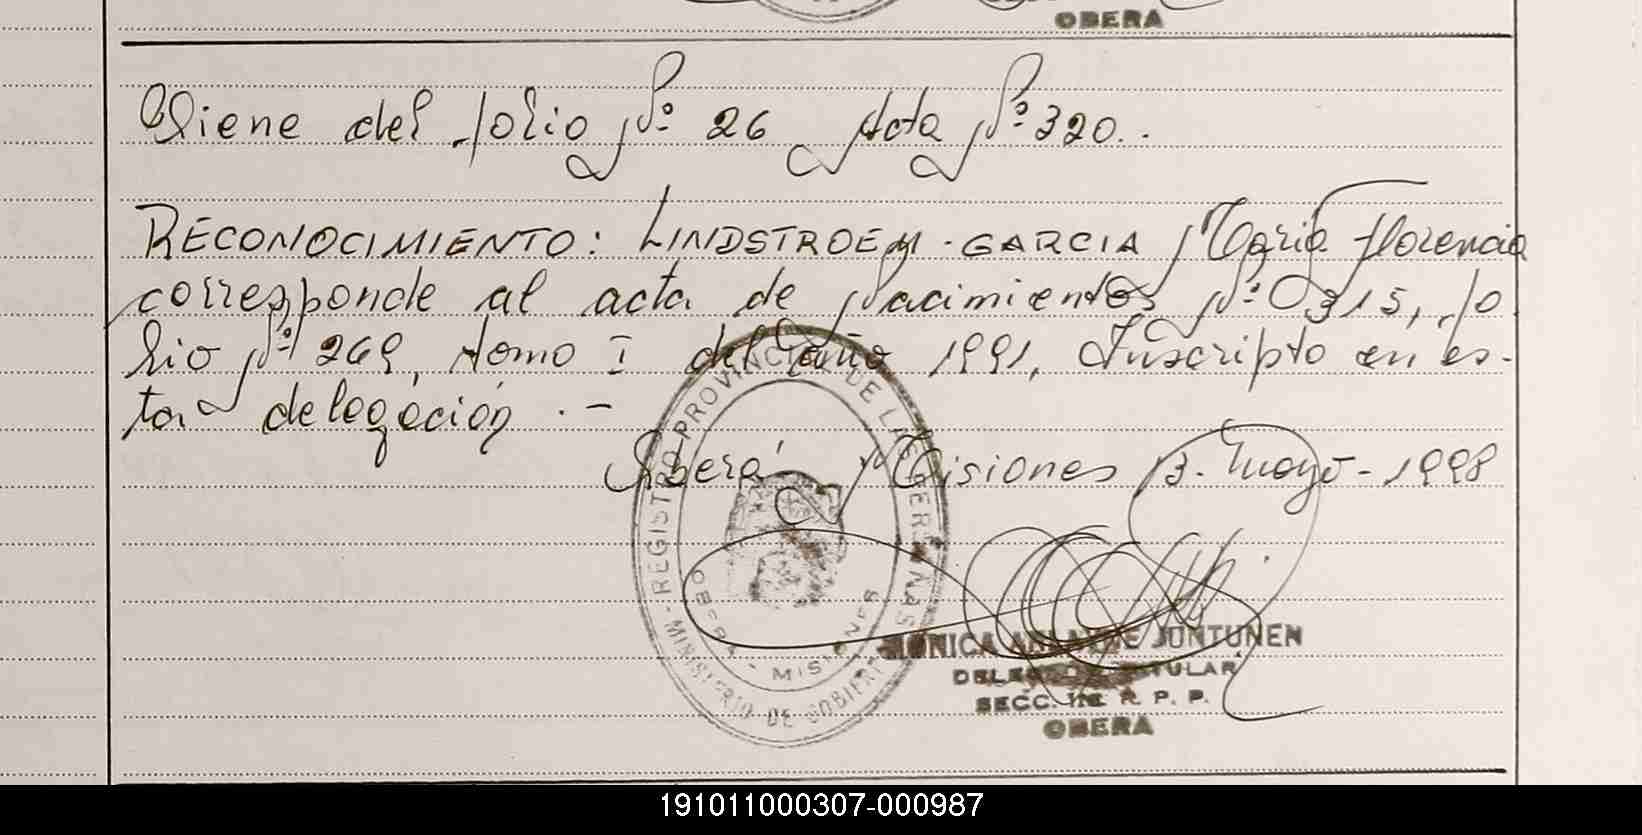 OBERA
Viene del folio Nº 26 Acta Nº 320.-
RECONOCIMIENTO: LINDSTROEM-GARCIA Maria Florencia
corresponde al acta de Nacimientos Nº 0315, fo
lio Nº 269, tomo I del año 1991, Inscripto en es-
ta delegación.-
Oberá Misiones 13-Mayo-1998
REGISTRO PROVINCIAL DE LAS PERSONAS
MINISTERIO DE GOBIERNO
OBERA - MISIONES
MONICA JUNTUNEN
DELEGADA TITULAR
SECC. R. P. P.
OBERA
191011000307-000987